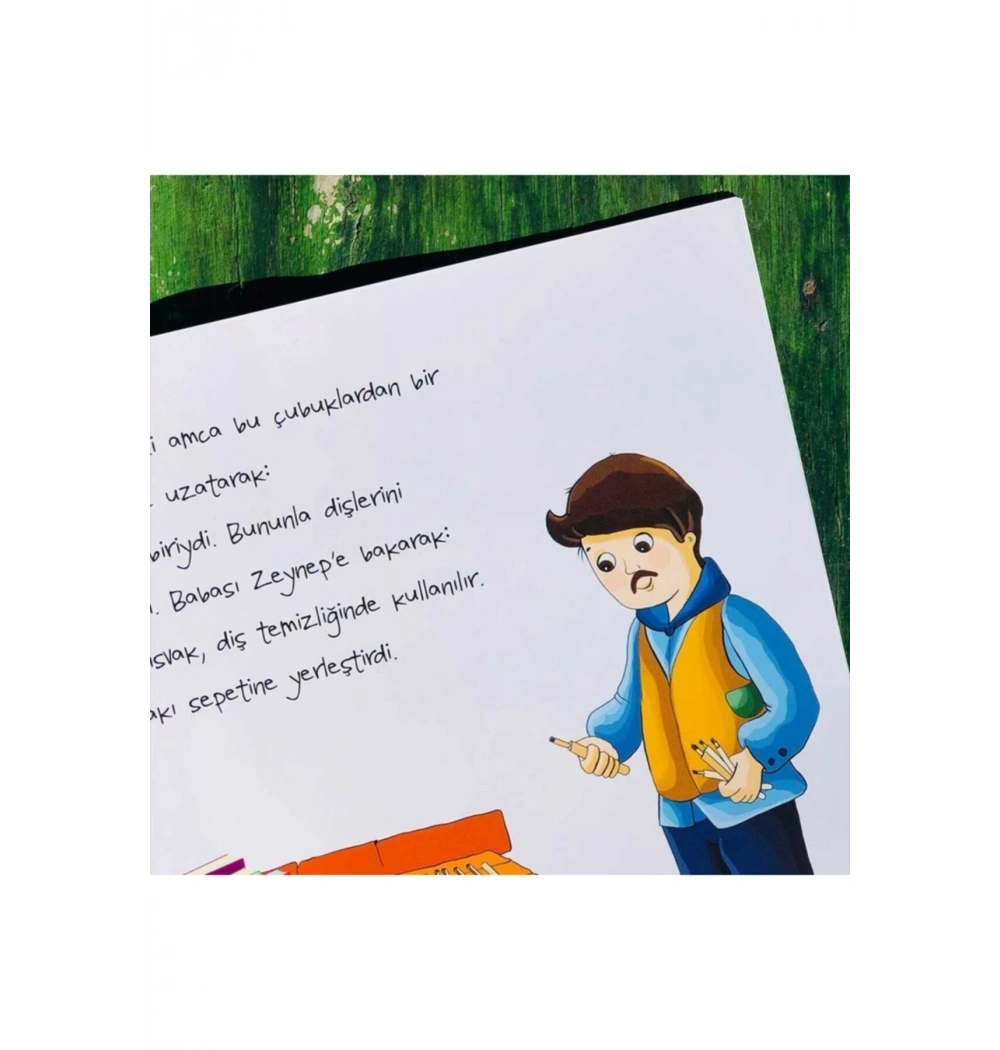 amca bu çubuklardan bir
uzatarak:
biriydi. Bununla dişlerini
Babası Zeynep'e bakarak:
diş temizliğinde kullanılır.
sepetine yerleştirdi.